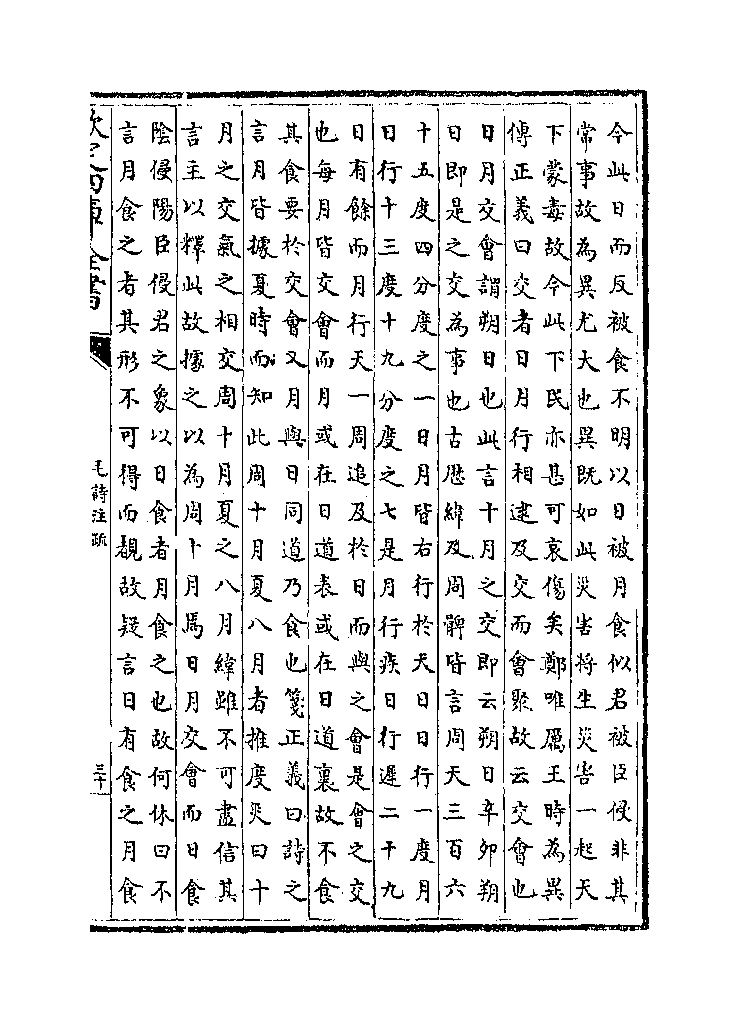 今此日而反被食不明以日被月食似君被臣侵非其
常事故為異尤大也異既如此災害將生災害一起天
下蒙毒故今此下民亦甚可哀傷矣鄭唯厲王時為異
傳正義曰交者日月行相逮及交而會聚故云交會也
日月交會謂朔日也此言十月之交即云朔日辛卯朔
日即是之交為事也古歴緯及周髀皆言周天三百六
十五度四分度之一日月皆右行於天日日行一度月
日行十三度十九分度之七是月行疾日行遲二十九
日有餘而月行天一周追及於日而與之會是會之交
也每月皆交會而月或在日道表或在日道裏故不食
其食要於交會又月與日同道乃食也箋正義曰詩之
言月皆據夏時而知此周十月夏八月者推度災曰十
月之交氣之相交周十月夏之八月緯雖不可盡信其
言主以釋此故據之以為周十月焉日月交會而日食
陰侵陽臣侵君之象以日食者月食之也故何休曰不
言月食之者其形不可得而覩故疑言日有食之月食
欽定四庫全書
毛詩注疏
三十